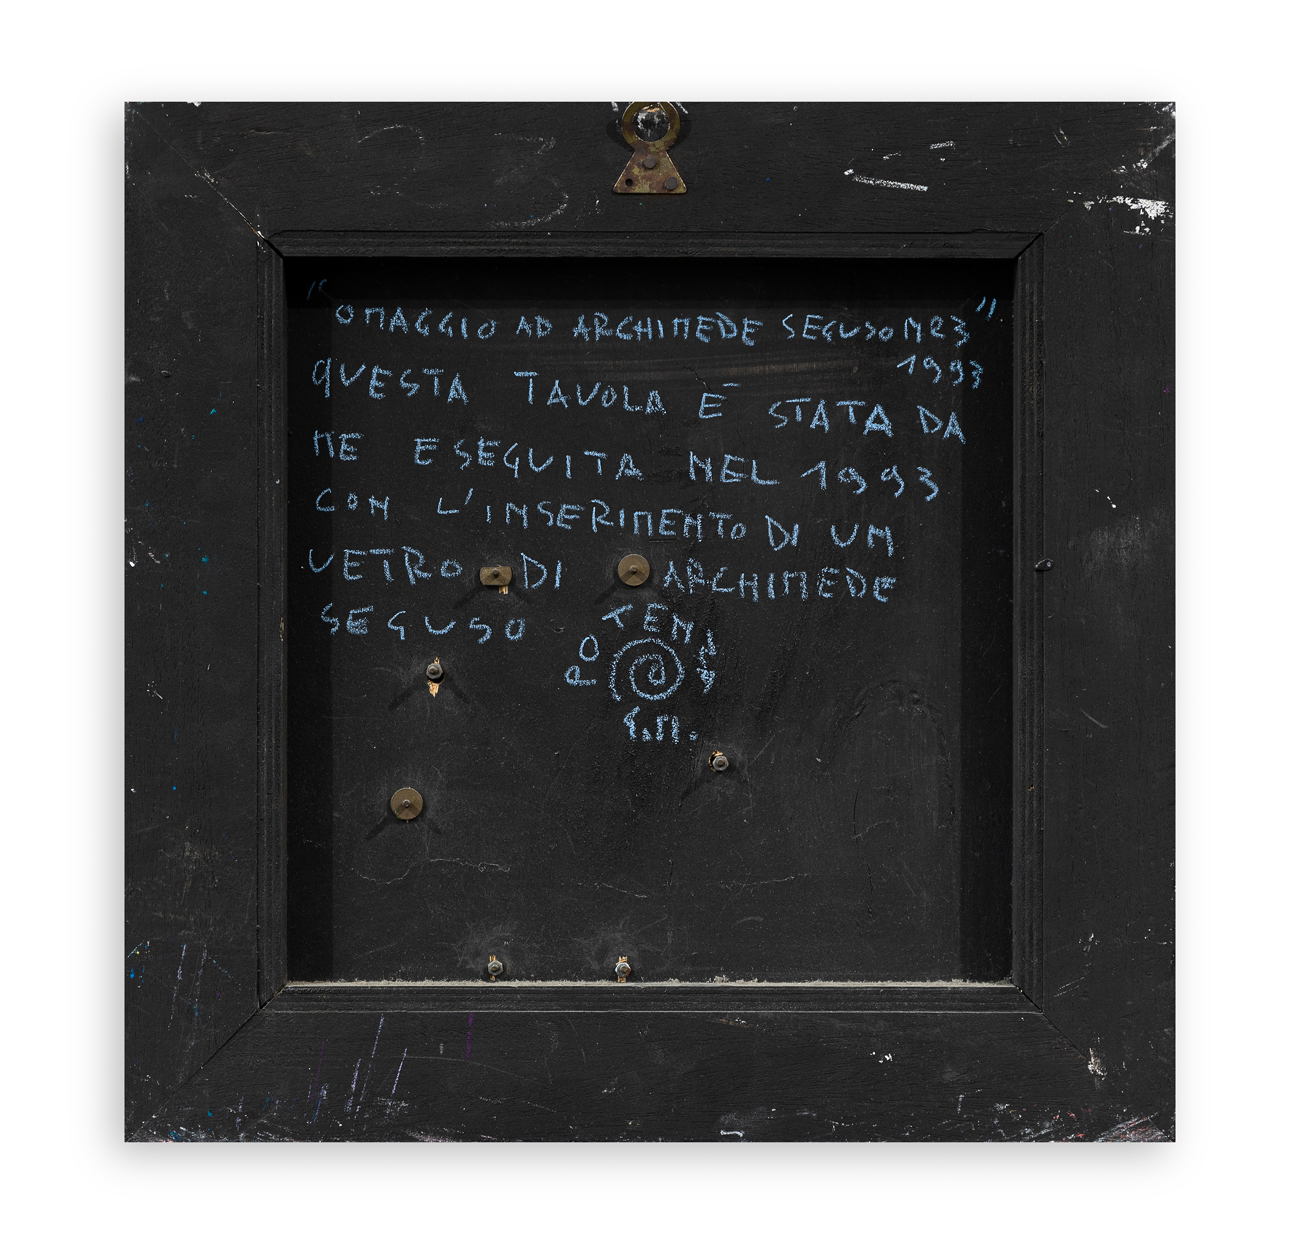 "OMAGGIO AD ARCHIMEDE SEGUSO N23"
1993
QUESTA TAVOLA È STATA DA
ME ESEGUITA NEL 1993
CON L'INSERIMENTO DI UN
VETRO DI ARCHIMEDE
SEGUSO
POTEM
E.M.